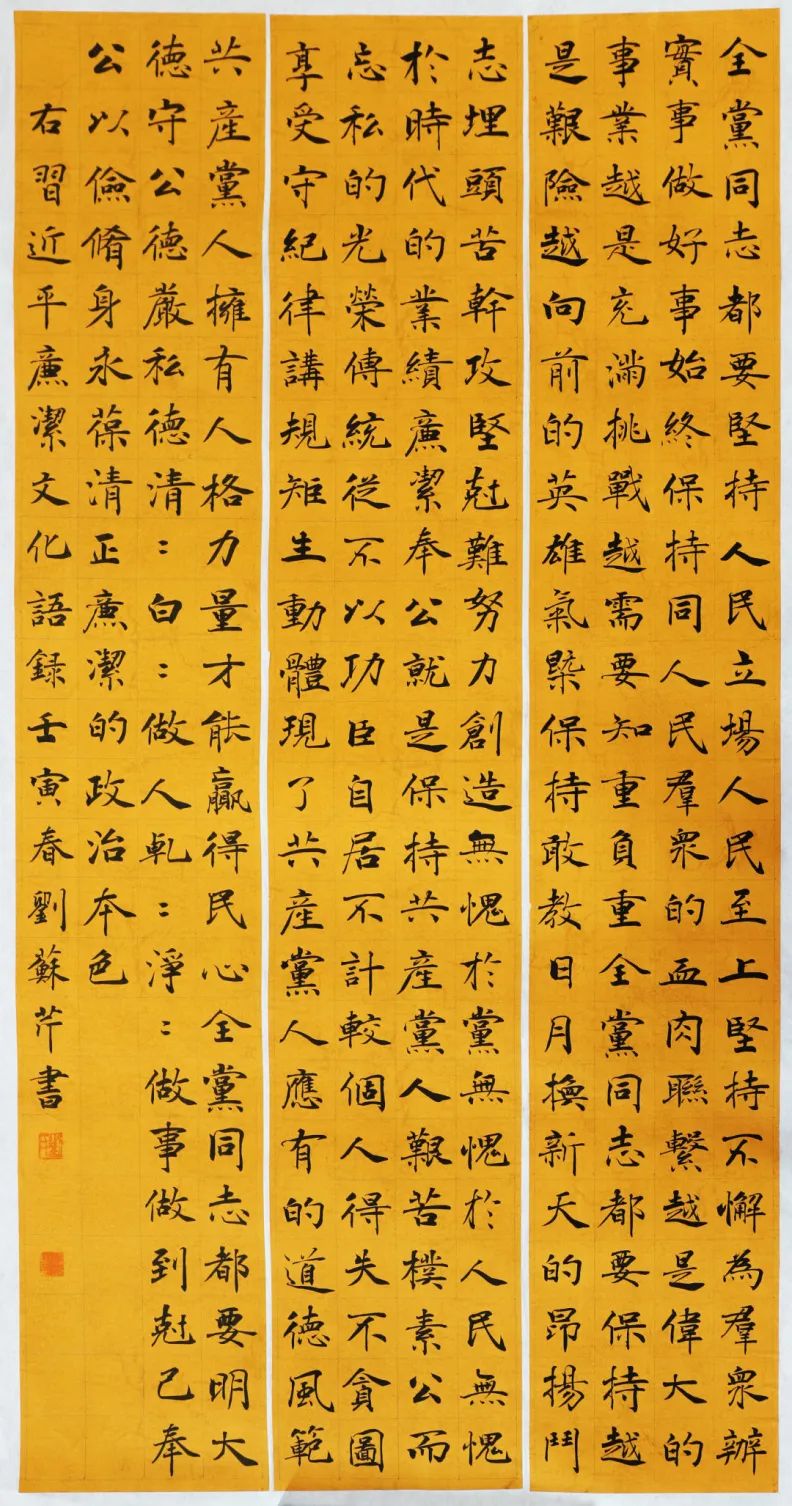 全黨同志都要堅持人民立場人民至上堅持不懈為羣衆辦
實事做好事始終保持同人民羣衆的血肉聯繫越是偉大的
事業越是充滿挑戰越需要知重負重全黨同志都要保持越
是艱險越向前的英雄氣槩保持敢教日月換新天的昂揚鬥
志埋頭苦幹攻堅尅難努力創造無愧於黨無愧於人民無愧
於時代的業績廉潔奉公就是保持共產黨人艱苦樸素公而
忘私的光榮傳統從不以功臣自居不計較個人得失不貪圖
享受守紀律講規矩生動體現了共產黨人應有的道德風範
共產黨人擁有人格力量才能贏得民心全黨同志都要明大
德守公德嚴私德清:白:做人乹:淨:做事做到尅己奉
公以儉脩身永葆清正廉潔的政治本色
右習近平廉潔文化語録壬寅春劉蘇芹書